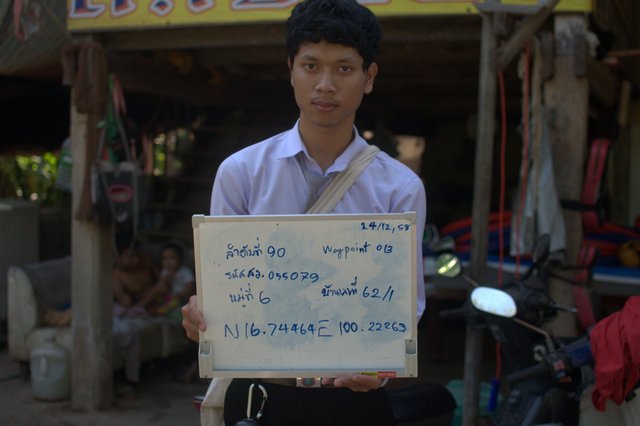 14/12/58
ลำดับที่ 90 Waypoint 013
รหัสสอ. 055079
หมู่ที่ 6 บ้านเลขที่ 62/1
N16.74464 E 100.22263